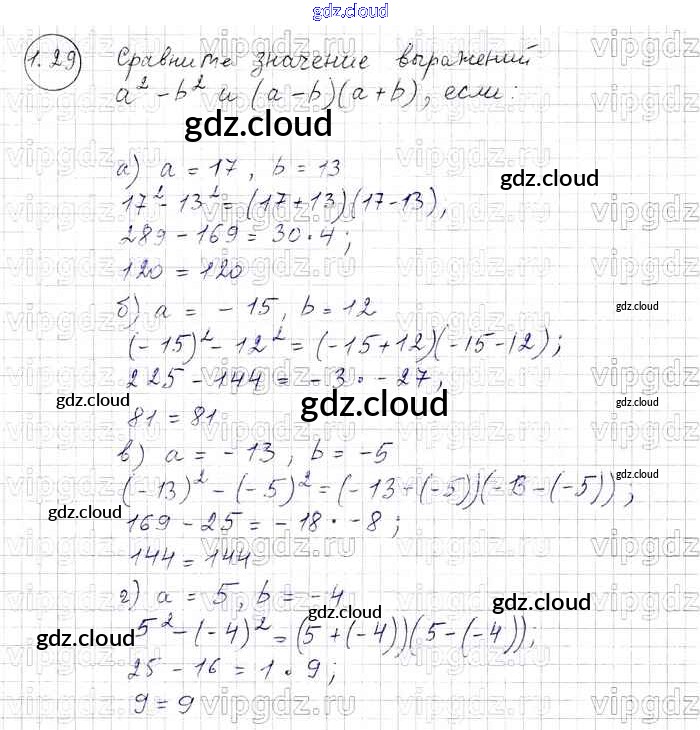 gdz.cloud
1.29 Сравните значение выражений
a² - b² и (a - b)(a + b), если:
gdz.cloud
а) a = 17, b = 13
gdz.cloud
17² - 13² = (17+13)(17-13),
289 - 169 = 30 · 4;
120 = 120
б) a = - 15, b = 12
gdz.cloud
(-15)² - 12² = (-15+12)(-15-12);
225 - 144 = - 3 · - 27,
gdz.cloud
gdz.cloud
gdz.cloud
81 = 81
в) a = - 13, b = - 5
gdz.cloud
(-13)² - (-5)² = (-13+(-5))(-13-(-5));
gdz.cloud
169 - 25 = - 18 · - 8;
144 = 144
г) a = 5, b = - 4
gdz.cloud
gdz.cloud
gdz.cloud
5² - (-4)² = (5+(-4))(5-(-4));
25 - 16 = 1 · 9;
9 = 9
vipgdz.ru